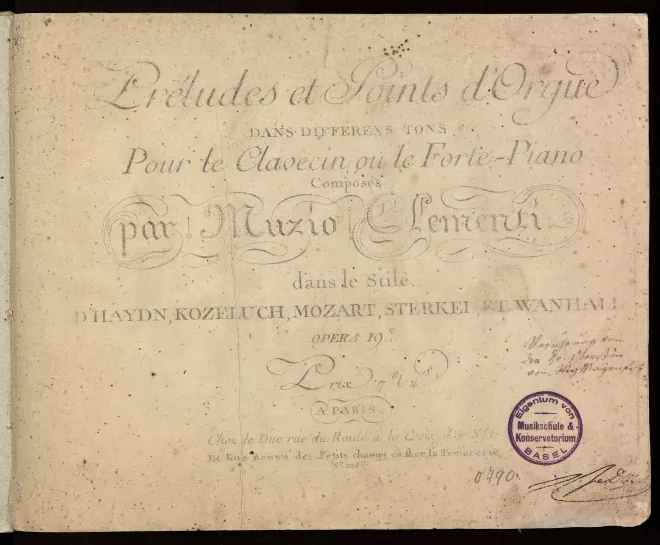 Préludes et Points d'Orgue
DANS DIFFÉRENS TONS
Pour le Clavecin ou le Forte-Piano
Composés
par Muzio Clementi
dans le Stile
D'HAYDN, KOZELUCH, MOZART, STERKEL, ET WANHALL
OPÉRA 19.
Prix 7
A PARIS
Chez le Duc rue du Roule a la Croix d'or N.º 6
Et Rue neuve des Petits champs en face la Trésorerie,
von
Eigentum von
Musikschule &
Konservatorium
BASEL
0790.